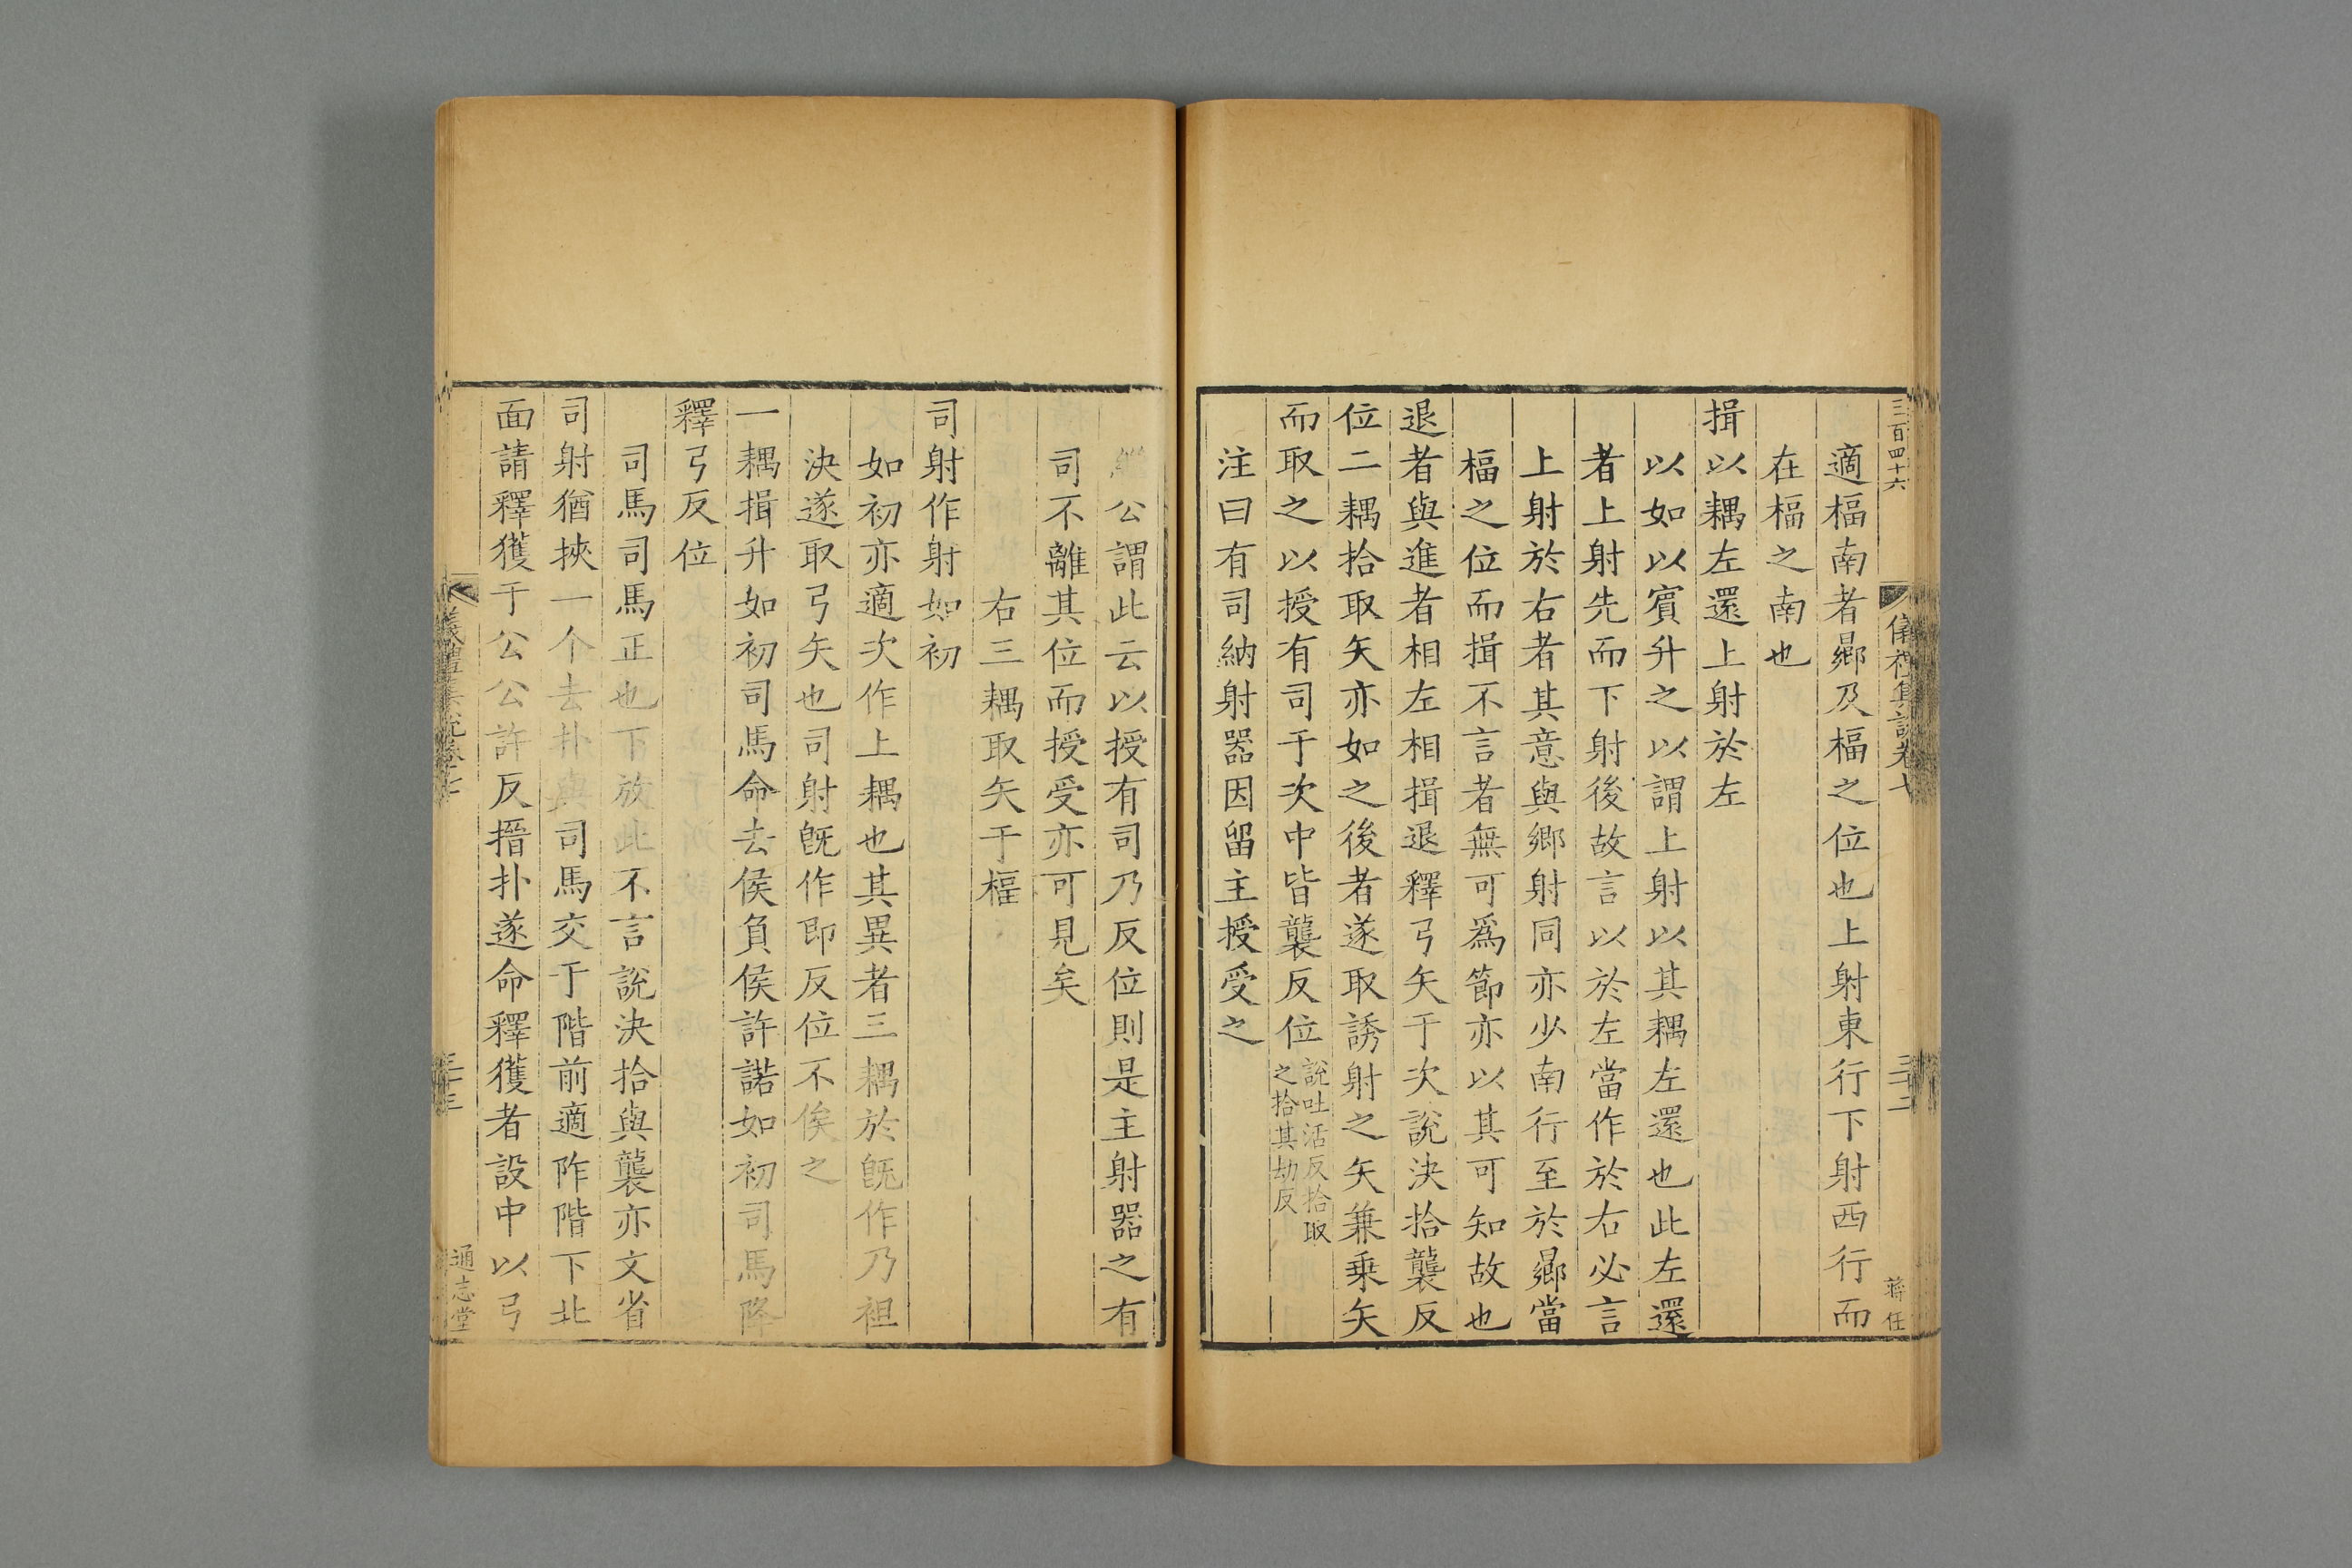 三百四十六
儀禮集說卷七
三十二
蔣任
適楅南者鄉及楅之位也上射東行下射西行而
在楅之南也
揖以耦左還上射於左
以如以賓升之以謂上射以其耦左還也此左還
者上射先而下射後故言以於左當作於右必言
上射於右者其意與鄉射同亦少南行至於鄉當
楅之位而揖不言者無可爲節亦以其可知故也
退者與進者相左相揖退釋弓矢于次說決拾襲反
位二耦拾取矢亦如之後者遂取誘射之矢兼乗矢
而取之以授有司于次中皆襲反位說吐活反拾取
之拾其劫反
注曰有司納射器因留主授受之
繼公謂此云以授有司乃反位則是主射器之有
司不離其位而授受亦可見矣
右三耦取矢于楅
司射作射如初
如初亦適次作上耦也其異者三耦於旣作乃袒
決遂取弓矢也司射旣作即反位不俟之
一耦揖升如初司馬命去侯負侯許諾如初司馬降
釋弓反位
司馬司馬正也下放此不言說決拾與襲亦文省
司射猶挾一个去扑與司馬交于階前適阼階下北
面請釋獲于公公許反搢扑遂命釋獲者設中以弓
儀禮集說卷七
三十三
通志堂